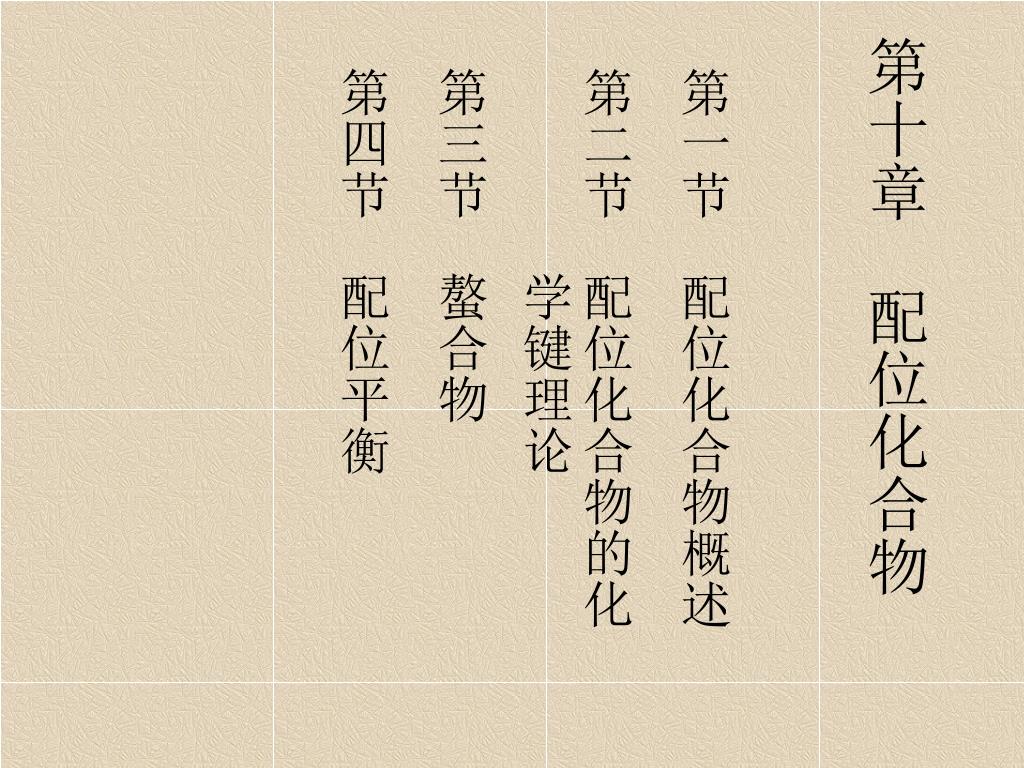 第十章 配位化合物
第一节 配位化合物概述
第二节 配位化合物的化
学键理论
第三节 螯合物
第四节 配位平衡